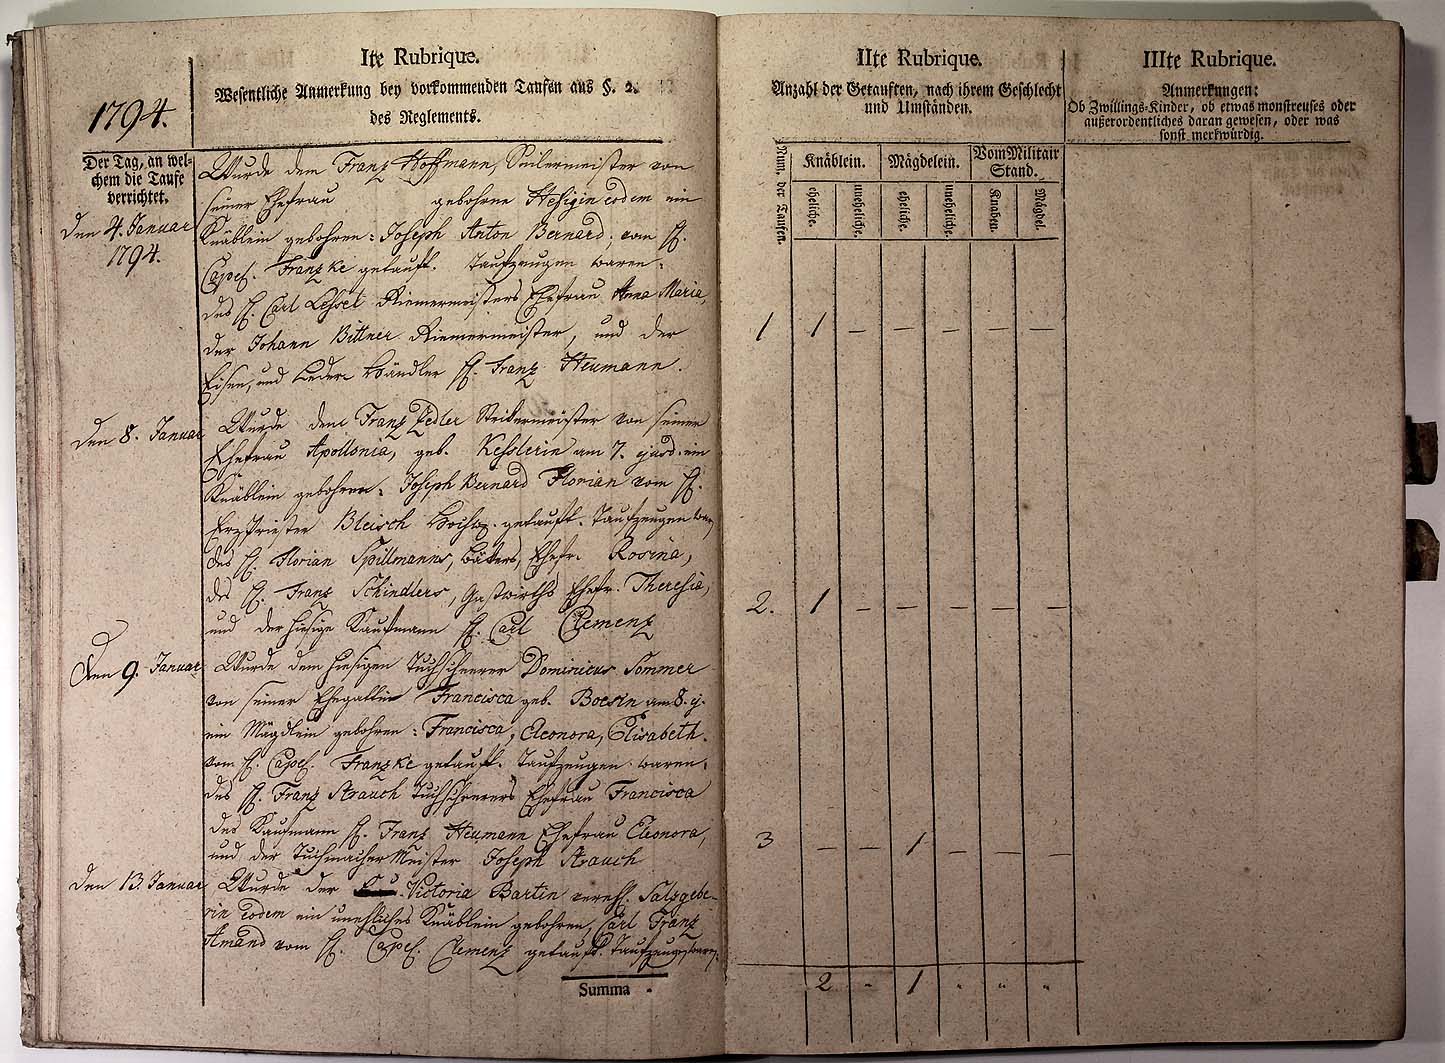 Ite Rubrique.
Wesentliche Anmerkung bey vorkommenden Taufen aus §. 2.
des Reglements.
1794.
Der Tag, an wel-
chem die Taufe
verrichtet.
den 4. Januar
1794.
Wurde dem Franz Hoffmann, Seilermeister von
seiner Ehefrau gebohrne Hessigin eodem ein
Knäblein gebohren: Joseph Anton Bernard, vom H.
Capel. Franzke getauft. Taufzeugen waren:
des H. Carl Lessel Riemermeisters Ehefrau Anna Maria,
der Johann Bittner Riemermeister, und der
Eisen, und Leder Händler H. Franz Heumann.
den 8. Januar
Wurde dem Franz Zedler von seiner
Ehefrau Apollonia, geb. Kesslerin am 7. ejusd. ein
Knäblein gebohren: Joseph Bernard Florian vom H.
Erzpriester Bleisch getauft. Taufzeugen war.
des H. Florian Spillmanns, Bäkers, Ehefr. Rosina,
des H. Franz Schindlers, Gastwirths Ehefr. Theresia,
und der hiesige Kaufmann H. Carl Clemenz
Den 9. Januar
Wurde dem hiesigen Tuchscheerer Dominicus Sommer
von seiner Ehegattin Francisca geb. Boesin am 8. ej.
ein Mägdlein gebohren: Francisca, Eleonora, Elisabeth.
vom H. Capel. Franzke getauft. Taufzeugen waren:
des H. Franz Rauch Tuchscheerers Ehefrau Francisca
des Kaufmann H. Franz Heumann Ehefrau Eleonora,
und der Tuchmacher Meister Joseph Rauch
den 13. Januar
Wurde der Victoria Bartin verehl. Salzgebe-
rin eodem ein unehliches Knäblein gebohren, Carl Franz
Amand vom H. Capel. Clemenz getauft. Taufzeug. waren:
Summa
IIte Rubrique.
Anzahl der Getauften, nach ihrem Geschlecht
und Umständen.
Num. der Taufen.
Knäblein.
Mägdelein.
Vom Militair
Stand.
eheliche.
uneheliche.
eheliche.
uneheliche.
Knaben.
Mägdel.
1 1 – – – – –
2. 1 – – – – –
3 – – 1 – – –
2 " 1 " " "
IIIte Rubrique.
Anmerkungen:
Ob Zwillings-Kinder, ob etwas monstreuses oder
außerordentliches daran gewesen, oder was
sonst merkwürdig.